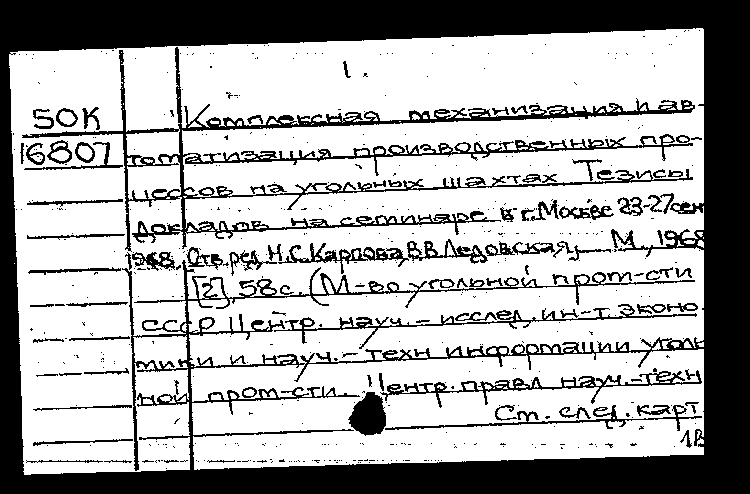 1.
50К Комплексная механизация и ав-
16807 томатизация производственных про-
цессов на угольных шахтах Тезисы
докладов на семинаре в г. Москве 23-27 сен
1968. Отв. ред. Н.С. Карпова, В.В. Ледовская, М., 1968
[2], 58 с. (М-во угольной пром-сти
СССР Центр. науч.-исслед. ин-т. эконо-
мики и науч.-техн информации уголь
ной пром-сти. Центр. правл науч.-техн
Ст. след. карт
1В